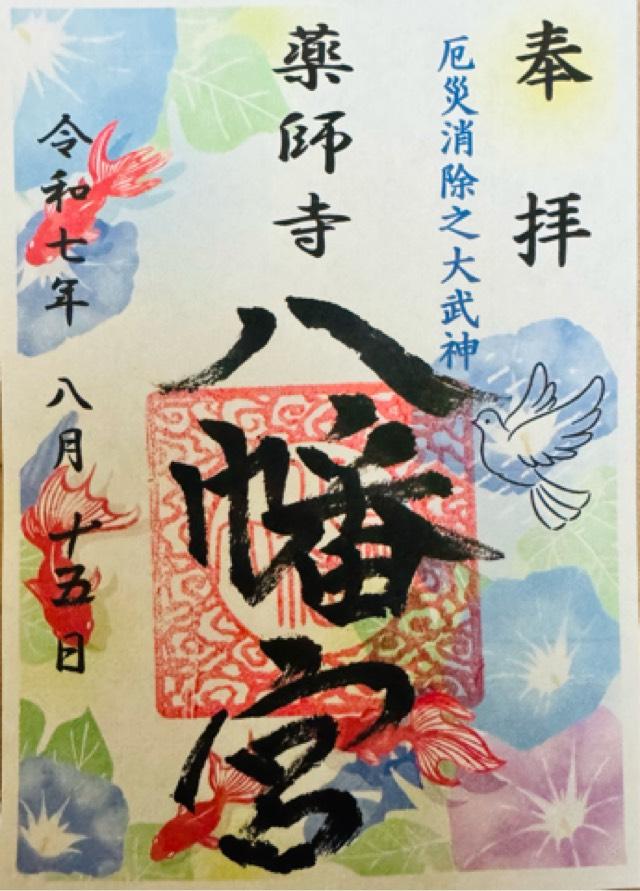 奉拝
厄災消除之大武神
薬師寺
八幡宮
令和七年 八月 十五日